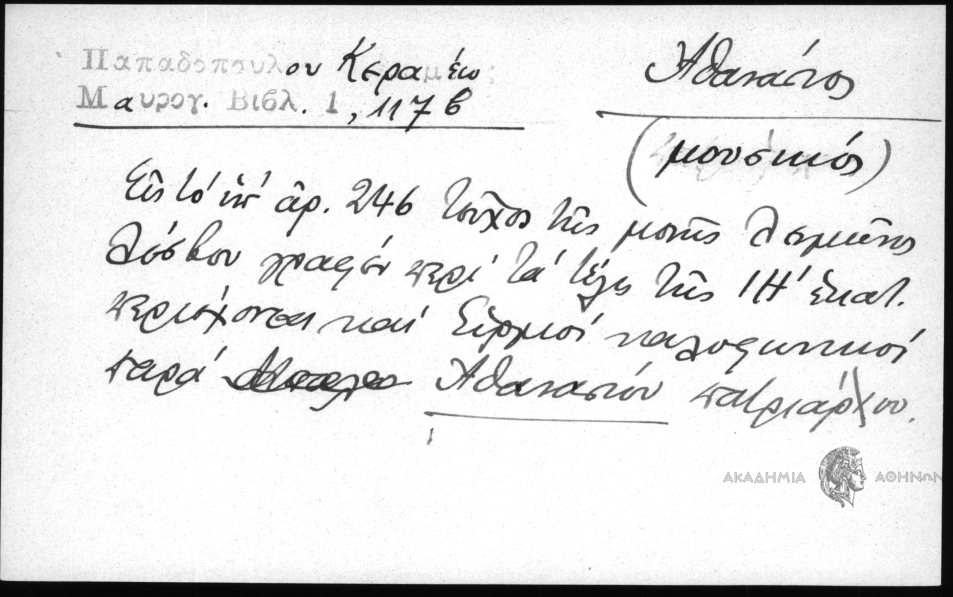 Παπαδοπουλου Κεραμέω:
Μαυρογ. Βιβλ. 1, 117 β
Ἀθανάσιος
(μουσικός)
Εἰς τό ὑπ' ἀρ. 246 τεῦχος τῆς μονῆς Λειμῶνος
Λέσβου γραφέν περί τά τέλη τῆς ΙΗ' ἑκατ.
περιέχονται καί Εἱρμοί καλοφωνικοί
παρά Ἀθανασίου πατριάρχου.
ΑΚΑΔΗΜΙΑ ΑΘΗΝΩΝ